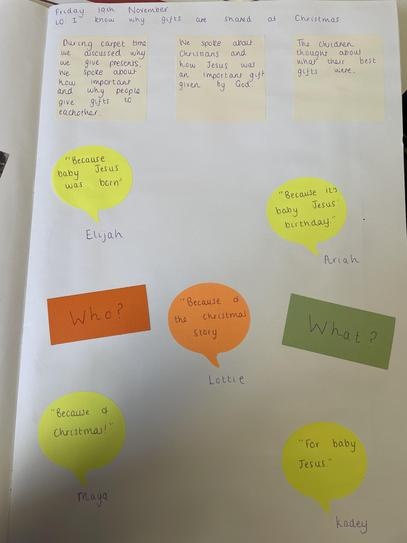 Friday 19th November
LO I know why gifts are shared at Christmas
During carpet time
we discussed why
we give presents.
We spoke about
how important
and why people
give gifts to
eachother.
We spoke about
Christians and
how Jesus was
an important gift
given by God.
The children
thought about
what their best
gifts were.
"Because
baby Jesus
was born"
Elijah
"Because its
baby Jesus'
birthday."
Ariah
Who?
"Because of
the Christmas
story
Lottie
What?
"Because of
Christmas!"
Maya
"For baby
Jesus."
Kadey